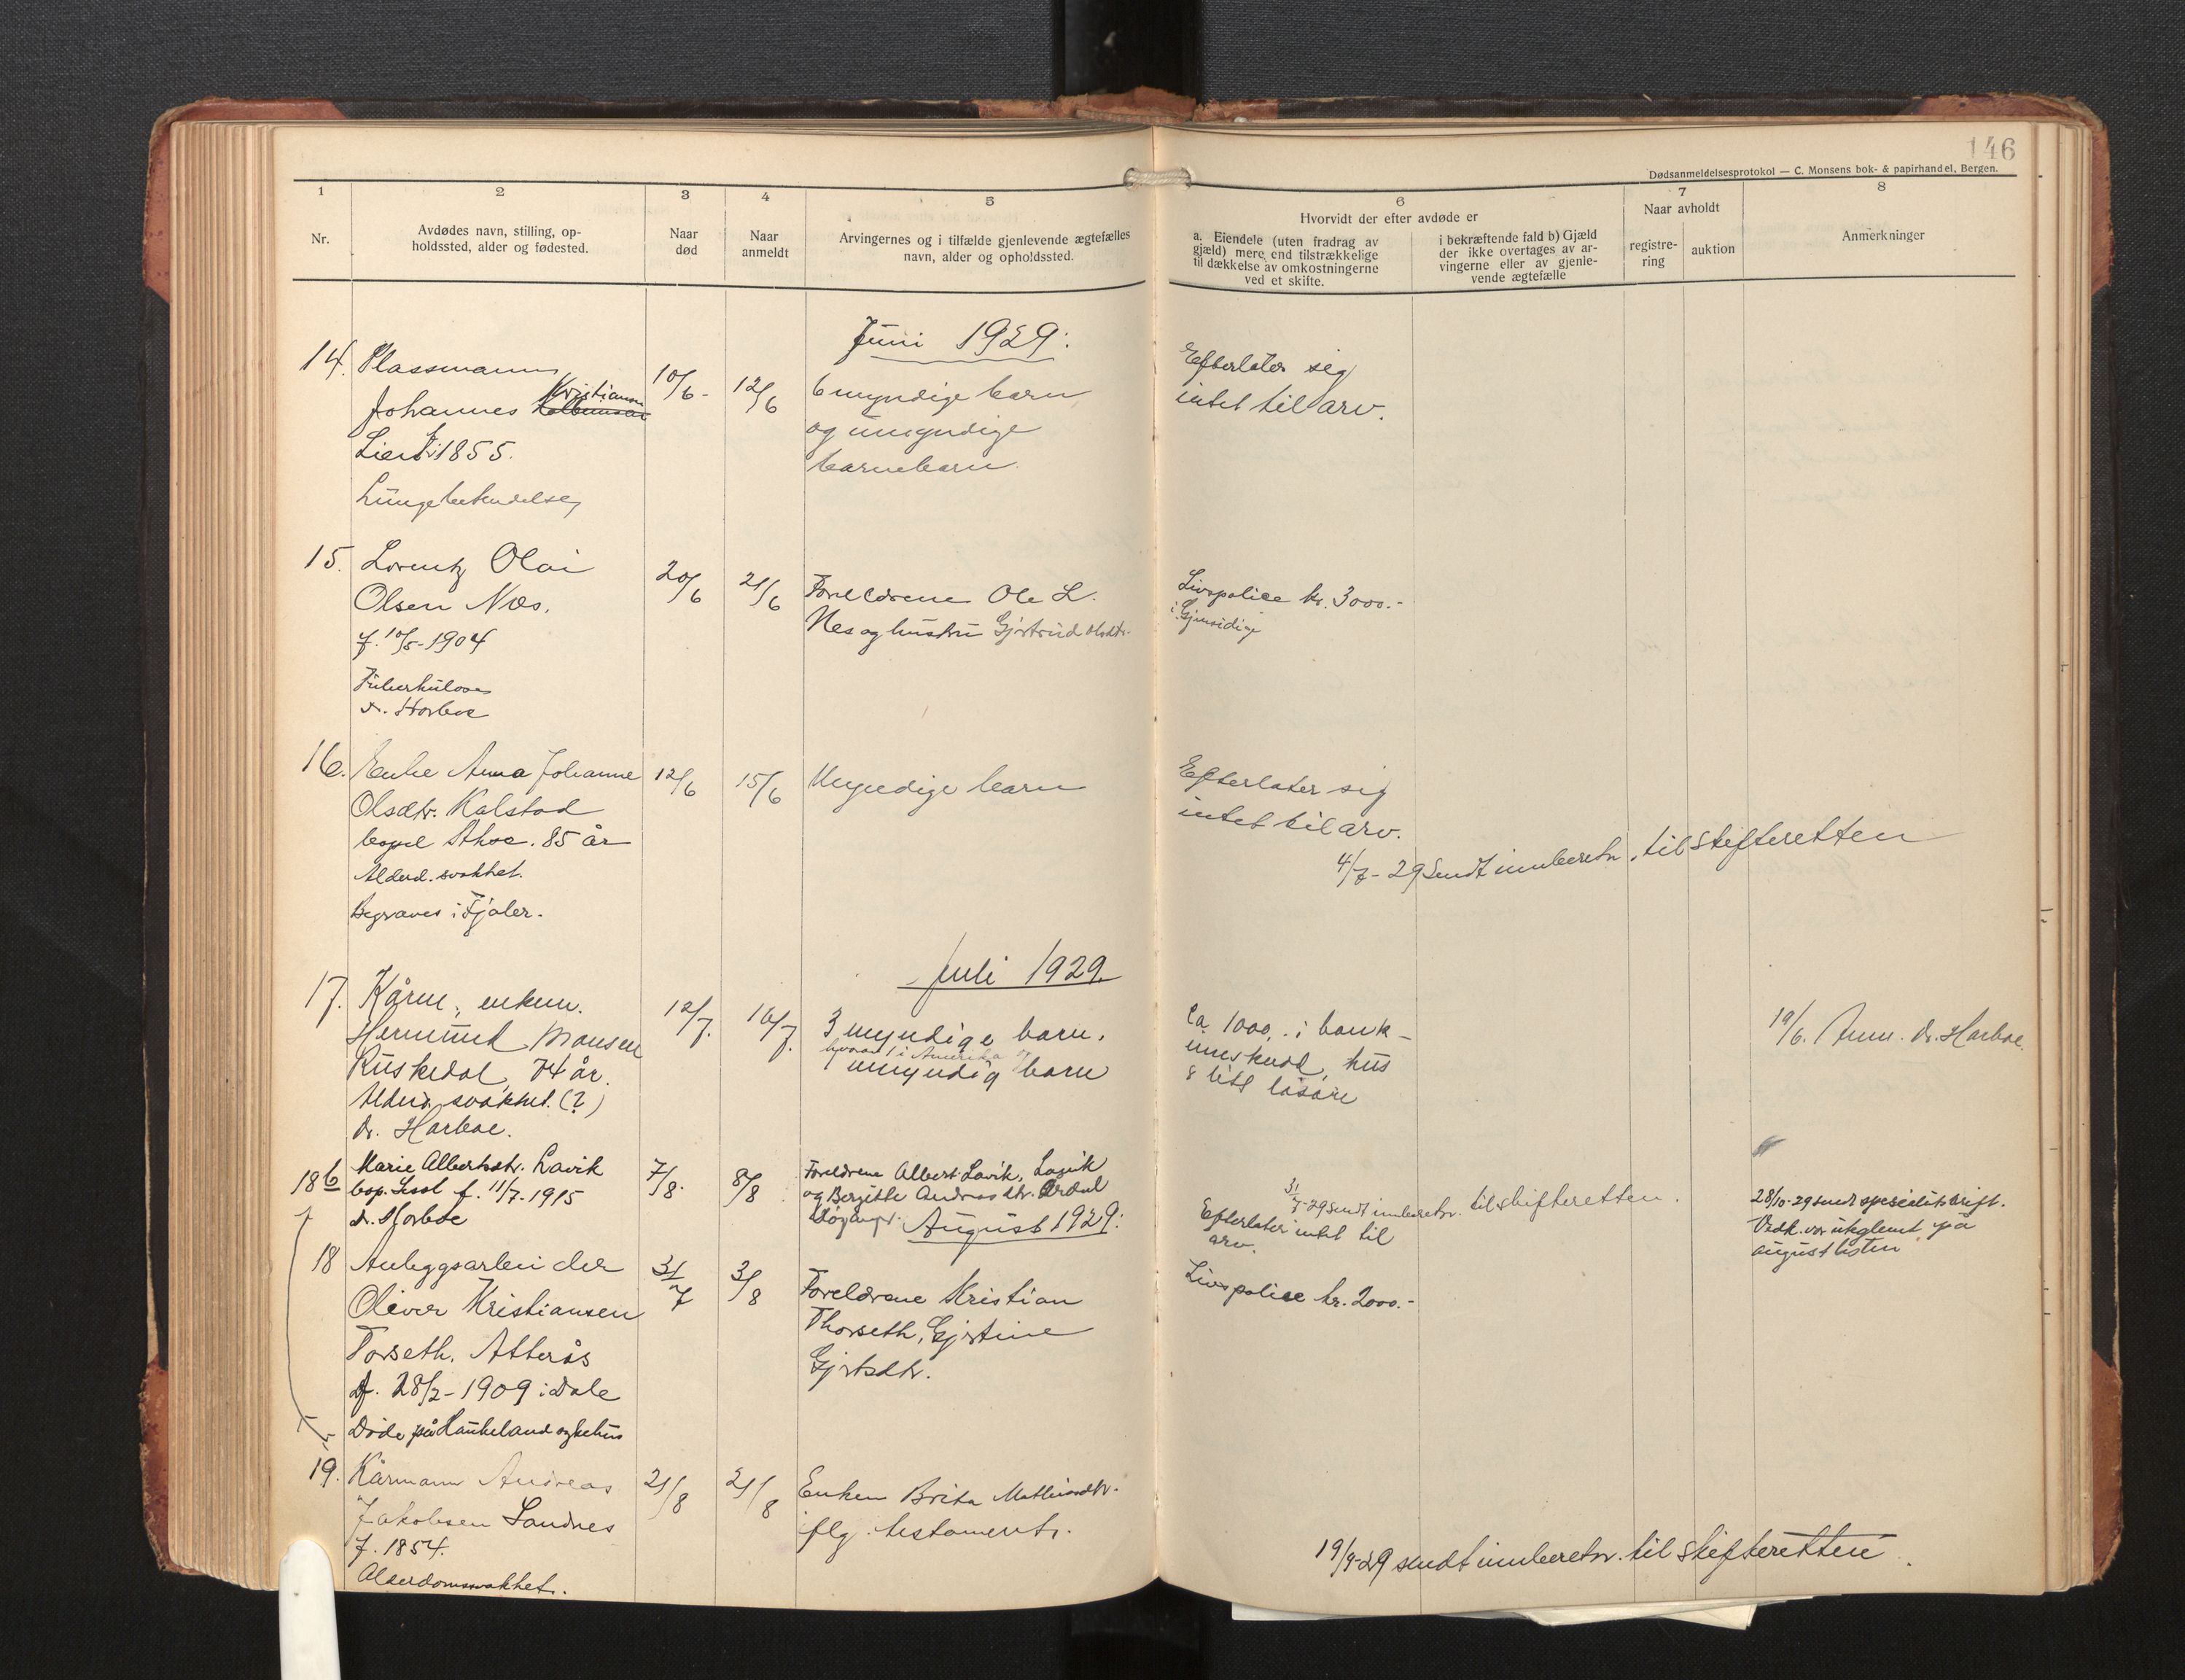 146
Dødsanmeldelsesprotokol — C. Monsens bok- & papirhandel, Bergen.
1
2
3
4
5
6
7
8
Nr.
Avdødes navn, stilling, op-
holdssted, alder og fødested.
Naar
død
Naar
anmeldt
Arvingernes og i tilfælde gjenlevende ægtefælles
navn, alder og opholdssted.
Hvorvidt der efter avdøde er
a. Eiendele (uten fradrag av
gjæld) mere end tilstrækkelige
til dækkelse av omkostningerne
ved et skifte.
i bekræftende fald b) Gjæld
der ikke overtages av ar-
vingerne eller av gjenle-
vende ægtefælle
Naar avholdt
registre-
ring
auktion
Anmerkninger
Juni 1929:
14. Plassmann
Johannes Kristiansen
1855.
Lungebetendelse
10/6-
12/6
6 myndige barn
og umyndige
barnebarn.
Efterlater sig
intet til arv.
15. Lorentz Olai
Olsen Nes.
f. 10/5-1904
Tuberkulose
dr. Harboe
20/6
21/6
Foreldrene Ole L.
Nes og hustru Gjertrud Olsdtr.
Livspolice kr. 3000.-
i Gjensidige
16. Enke Anna Johanne
Olsdtr. Kalstad
85 år
Alderd. svakhet.
Begraves i Fjaler.
12/6
15/6
Myndige barn
Efterlater sig
intet til arv.
4/7-29 sendt innberetn. til skifteretten
Juli 1929.
17. Kårm. enkem.
Hermund Monsen
Ruskedal, 74 år.
Alderd. svakhet. (?)
dr. Harboe.
12/7.
16/7.
3 myndige barn,
hvorav 1 i Amerika og
umyndig barn
Ca. 1000.- i bank-
inneskudd, hus
& litt løsøre
19/6. Anm. dr. Harboe.
18b Marie Albertsdtr. Lavik
f. 11/7-1915
dr. Harboe
7/8.
8/8
Foreldrene Albert Lavik, Lavik
og Bergitte Andreasdtr.
31/7-29 sendt innberetn. til skifteretten.
Efterlater intet til
arv.
28/10-29 sendt specialutskrift.
Vedk. var utglemt på
august listen
August 1929:
18 Anleggsarbeider
Oliver Kristiansen
Torseth, Atterås
f. 28/2-1909 i Dale
Døde på Haukeland sykehus
31/7
3/8
Foreldrene Kristian
Thorseth, Gjertine
Gjertsdtr.
Livspolice kr. 2000.-
19. Kårmann Andreas
Jakobsen Sandnes
f. 1854.
Alderdomssvakhet.
21/8
21/8
Enken Brita Mathiasdtr.
iflg. testament.
19/9-29 sendt innberetn. til skifteretten.